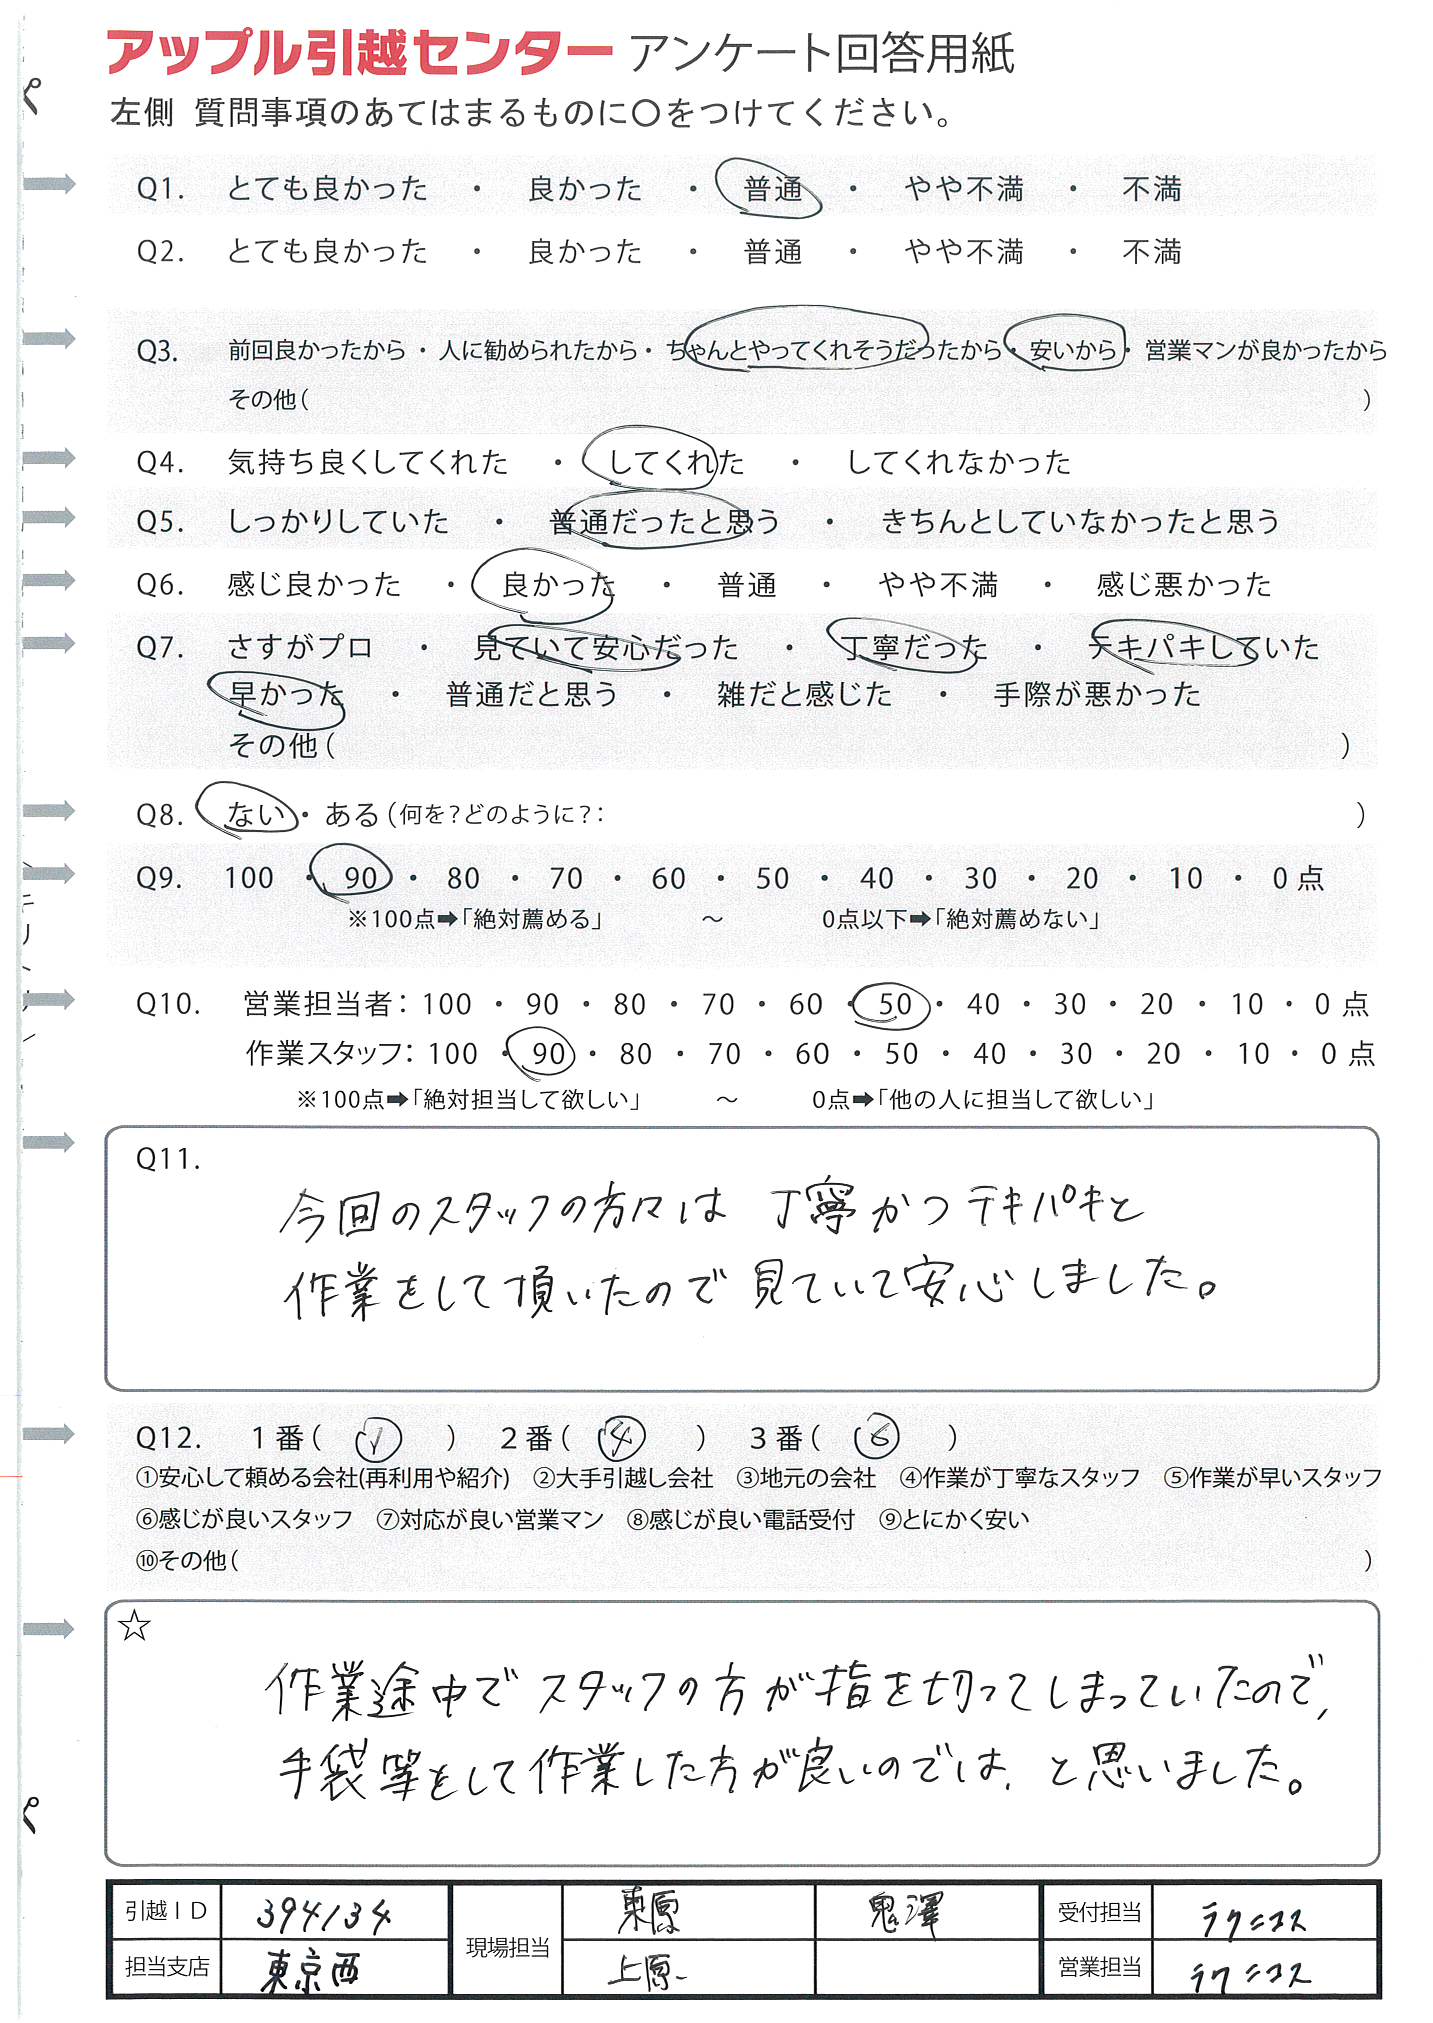 アップル引越センター アンケート回答用紙
左側 質問事項のあてはまるものに○をつけてください。
Q1. とても良かった ・ 良かった ・ 普通 ・ やや不満 ・ 不満
Q2. とても良かった ・ 良かった ・ 普通 ・ やや不満 ・ 不満
Q3. 前回良かったから ・ 人に勧められたから ・ ちゃんとやってくれそうだったから ・ 安いから ・ 営業マンが良かったから
その他( )
Q4. 気持ち良くしてくれた ・ してくれた ・ してくれなかった
Q5. しっかりしていた ・ 普通だったと思う ・ きちんとしていなかったと思う
Q6. 感じ良かった ・ 良かった ・ 普通 ・ やや不満 ・ 感じ悪かった
Q7. さすがプロ ・ 見ていて安心だった ・ 丁寧だった ・ テキパキしていた
早かった ・ 普通だと思う ・ 雑だと感じた ・ 手際が悪かった
その他( )
Q8. ない ・ ある(何を?どのように?: )
Q9. 100 ・ 90 ・ 80 ・ 70 ・ 60 ・ 50 ・ 40 ・ 30 ・ 20 ・ 10 ・ 0 点
※100点➡「絶対薦める」 ～ 0点以下➡「絶対薦めない」
Q10. 営業担当者: 100 ・ 90 ・ 80 ・ 70 ・ 60 ・ 50 ・ 40 ・ 30 ・ 20 ・ 10 ・ 0 点
作業スタッフ: 100 ・ 90 ・ 80 ・ 70 ・ 60 ・ 50 ・ 40 ・ 30 ・ 20 ・ 10 ・ 0 点
※100点➡「絶対担当して欲しい」 ～ 0点➡「他の人に担当して欲しい」
Q11.
今回のスタッフの方々は 丁寧かつテキパキと
作業をして頂いたので見ていて安心しました。
Q12. 1番( ① ) 2番( ④ ) 3番( ⑥ )
①安心して頼める会社(再利用や紹介) ②大手引越し会社 ③地元の会社 ④作業が丁寧なスタッフ ⑤作業が早いスタッフ
⑥感じが良いスタッフ ⑦対応が良い営業マン ⑧感じが良い電話受付 ⑨とにかく安い
⑩その他( )
☆
作業途中でスタッフの方が指を切ってしまっていたので、
手袋等をして作業した方が良いのでは、と思いました。
引越ID 394134 現場担当 東原 鬼澤 受付担当 ラクニコス
担当支店 東京西 上原 営業担当 ラクニコス